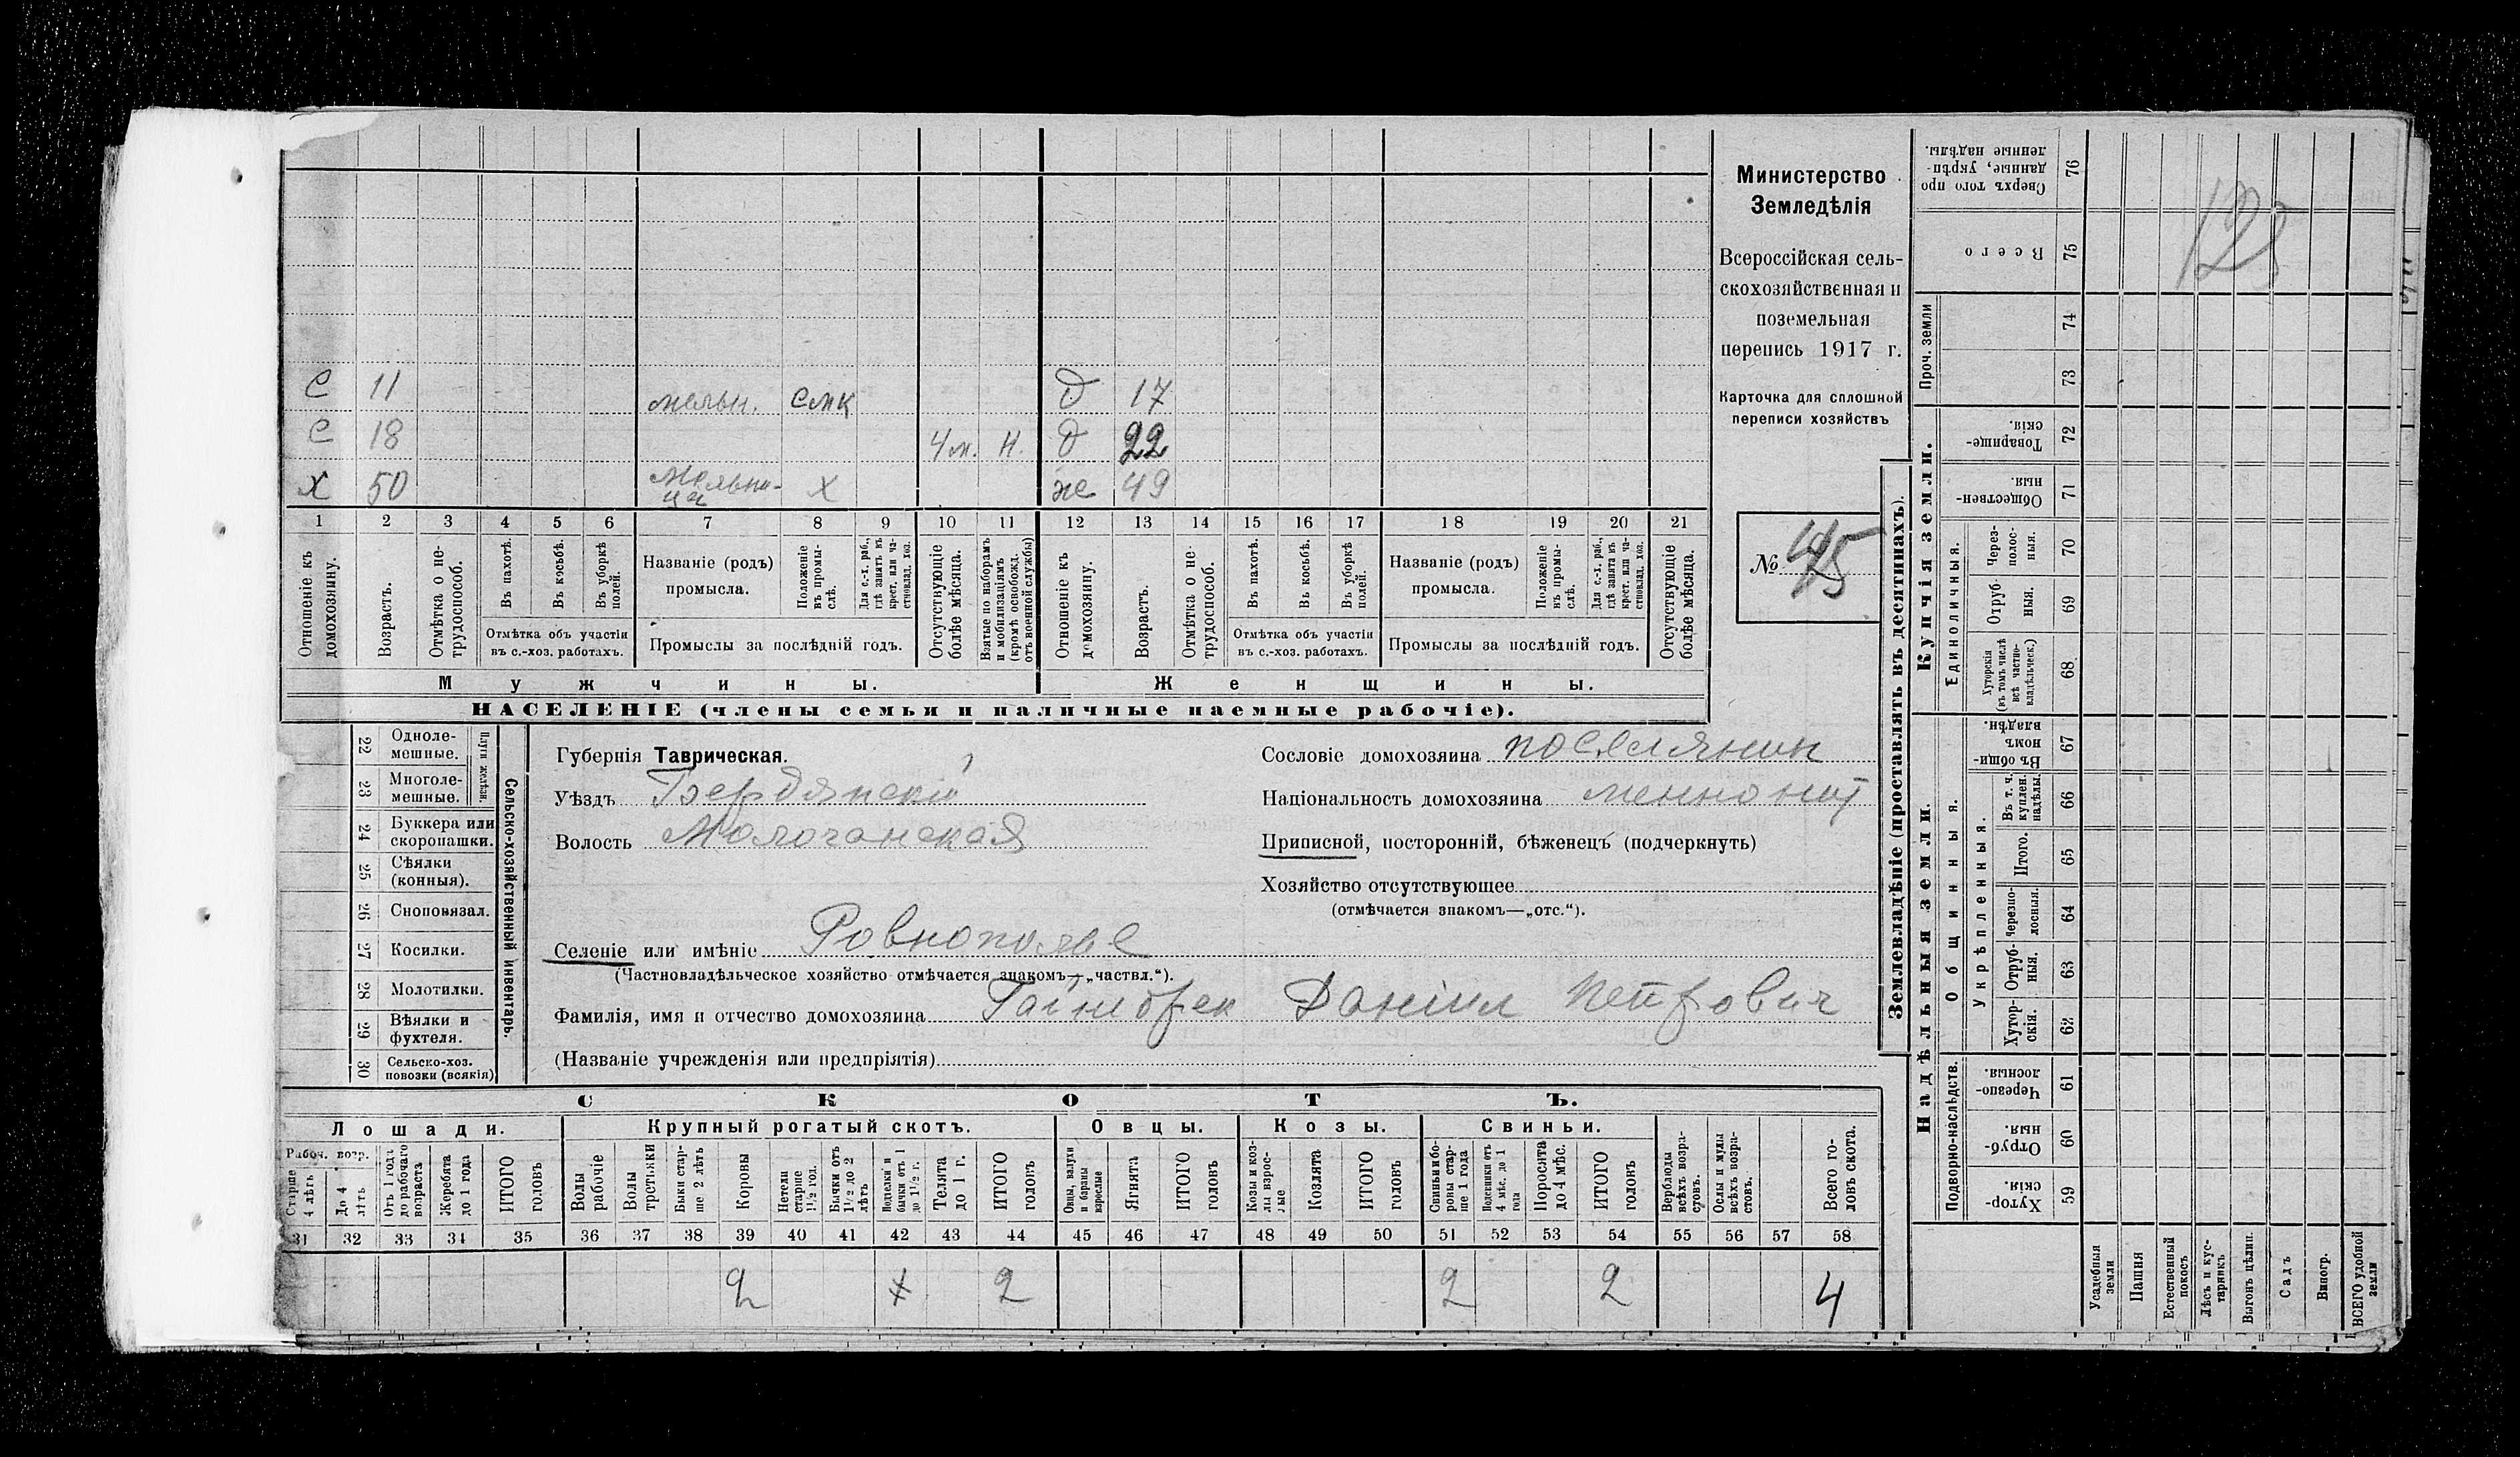 С 11 мельн. смк д 17
С 18 4 м. н. д 22
Х 50 Мельни-
ца Х же 49
1 2 3 4 5 6 7 8 9 10 11 12 13 14 15 16 17 18 19 20 21
Отношеніе къ домохозяину.
Возрастъ.
Отмѣтка о не-
трудоспособ.
Въ пахотѣ.
Въ косьбѣ.
Въ уборкѣ
полей.
Отмѣтка объ участіи
въ с.-хоз. работахъ.
Названіе (родъ)
промысла.
Положеніе
въ промы-
слѣ.
Для с.-х. раб.,
гдѣ занятъ въ
крест. или ча-
стновлад. хоз.
Промыслы за послѣдній годъ.
Отсутствующіе
болѣе мѣсяца.
Взятые по наборамъ
и мобилизаціямъ
(кромѣ освобожд.
отъ военной службы)
Отношеніе къ
домохозяину.
Возрастъ.
Отмѣтка о не-
трудоспособ.
Въ пахотѣ.
Въ косьбѣ.
Въ уборкѣ
полей.
Отмѣтка объ участіи
въ с.-хоз. работахъ.
Названіе (родъ)
промысла.
Положеніе
въ промы-
слѣ.
Для с.-х. раб.,
гдѣ занята въ
крест. или ча-
стновлад. хоз.
Промыслы за послѣдній годъ.
Отсутствующіе
болѣе мѣсяца.
Мужчины.
Женщины.
НАСЕЛЕНІЕ (члены семьи и наличные наемные рабочіе).
Министерство
Земледѣлія
Всероссійская сель-
скохозяйственная и
поземельная
перепись 1917 г.
Карточка для сплошной
переписи хозяйствъ
№ 45
22 Одноле-
мешные.
23 Многоле-
мешные.
Плуги желѣзн.
24 Буккера или
скоропашки.
25 Сѣялки
(конныя).
26 Сноповязал.
27 Косилки.
28 Молотилки.
29 Вѣялки и
фухтеля.
30 Сельско-хоз.
повозки (всякія)
Сельско-хозяйственный инвентарь.
Губернія Таврическая.
Уѣздъ Бердянскій
Волость Молочанская
Селеніе или имѣніе Ровнополье
(Частновладѣльческое хозяйство отмѣчается знакомъ—„частвл.“).
Фамилія, имя и отчество домохозяина Гайнбрек Даніил Петрович
(Названіе учрежденія или предпріятія)
Сословіе домохозяина поселянин
Національность домохозяина меннонит
Приписной, посторонній, бѣженецъ (подчеркнуть)
Хозяйство отсутствующее
(отмѣчается знакомъ—„отс.“).
СКОТЪ.
Лошади.
Крупный рогатый скотъ.
Овцы.
Козы.
Свиньи.
Рабоч. возр.
Старше
4 лѣтъ
До 4
лѣтъ
Отъ 1 года
до рабочаго
возраста
Жеребята
до 1 года
ИТОГО
головъ
Волы
рабочіе
Волы
третьяки
Быки стар-
ше 2 лѣтъ
Коровы
Нетели
старше
1½ год.
Бычки отъ
1½ до 2
лѣтъ
Подтелки и
бычки отъ 1
до 1½ г.
Телята
до 1 г.
ИТОГО
головъ
Овцы, валухи
и бараны
взрослые
Ягнята
ИТОГО
головъ
Козы и коз-
лы взрос-
лые
Козлята
ИТОГО
головъ
Свиньи и бо-
ровы стар-
ше 1 года
Подсвинки отъ
4 мѣс. до 1
года
Поросята
до 4 мѣс.
ИТОГО
головъ
Верблюды
всѣхъ возра-
стовъ.
Ослы и мулы
всѣхъ возра-
стовъ.
Всего го-
ловъ скота.
31 32 33 34 35 36 37 38 39 40 41 42 43 44 45 46 47 48 49 50 51 52 53 54 55 56 57 58
2 2 2 2 4
Землевладѣніе (проставлять въ десятинахъ).
Купчія земли.
Надѣльныя земли.
Сверхъ того про
данные, укрѣп-
ленные надѣлы.
76
Всего
75
Проч. земли
74
73
Товарище-
скія.
72
Обществен-
ныя.
71
Единоличныя.
Через-
полос-
ныя.
70
Отруб
ныя.
69
Хуторскія
(въ томъ числѣ
всѣ частно-
владѣльческ.)
68
Общинныя.
Въ общи-
номъ
владѣн.
67
Укрѣпленныя.
Въ т. ч.
куплен.
надѣлы.
66
Итого.
65
Черезпо-
лосныя.
64
Отруб-
ныя.
63
Хутор-
скія.
62
Подворно-наслѣдств.
Черезпо-
лосныя.
61
Отруб-
ныя.
60
Хутор-
скія.
59
Усадебныя
земли
Пашня
Естественный
покосъ
Лѣсъ и кус-
тарникъ
Выгонъ цѣлин.
Садъ
Виногр.
ВСЕГО удобной
земли